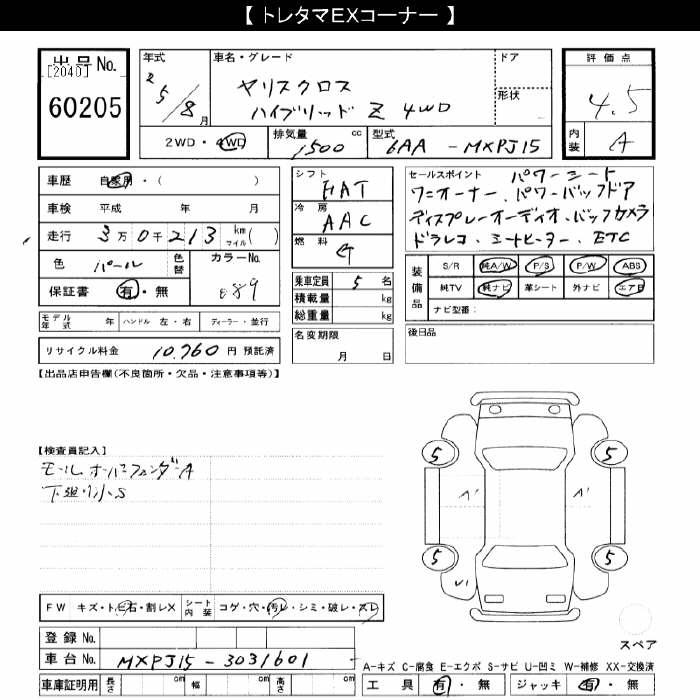 【 トレタマEXコーナー 】
出品 No.
[2040]
60205
年式
R5/8月
車名・グレード
ヤリスクロス
ハイブリッド Z 4WD
ドア
形状
評価点
4.5
内装 A
2WD・4WD
排気量 1500 cc
型式 6AA - MXPJ15
車歴 自家用・( )
車検 平成 年 月
走行 3万0千213 km マイル( )
色 パール 色替 カラーNo. 089
保証書 有・無
モデル年式 年 ハンドル 左・右 ディーラー・並行
リサイクル料金 10,760 円 預託済
シフト FAT
冷房 AAC
燃料 G
乗車定員 5 名
積載量 kg
総重量 kg
名変期限
月 日
セールスポイント パワーシート
ワンオーナー、パワーバックドア
ディスプレーオーディオ、バックカメラ
ドラレコ、シートヒーター、ETC
装備品
S/R 純A/W P/S P/W ABS
純TV 純ナビ 革シート 外ナビ エアB
ナビ型番:
後日品
【出品店申告欄(不良箇所・欠品・注意事項等)】
【検査員記入】
モール オーバーフェンダーA
下廻り小S
5
5
A'
A'
5
5
U1
FW キズ・トビ石・割レX シート内装 コゲ・穴・汚レ・シミ・破レ・スレ
登録 No.
車台 No. MXPJ15-3031601
スペア
A-キズ C-腐食 E-エクボ S-サビ U-凹ミ W-補修 XX-交換済
車庫証明用 長さ cm 幅 cm 高さ cm
工具 有・無 ジャッキ 有・無